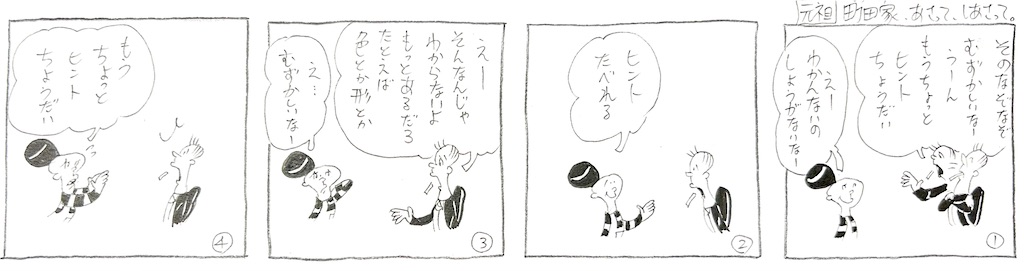 元祖 町田家、あさって、しあさって。
そのなぞなぞ
むずかしいなー
うーん
もうちょっと
ヒント
ちょうだい
えー
わかんないの
しょうがないなー
①
ヒント
たべれる
②
えー
そんなんじゃ
わからないよ
もっとあるだろ
たとえば
色とか形とか
え…
むずかしいなー
③
もう
ちょっと
ヒント
ちょうだい
④